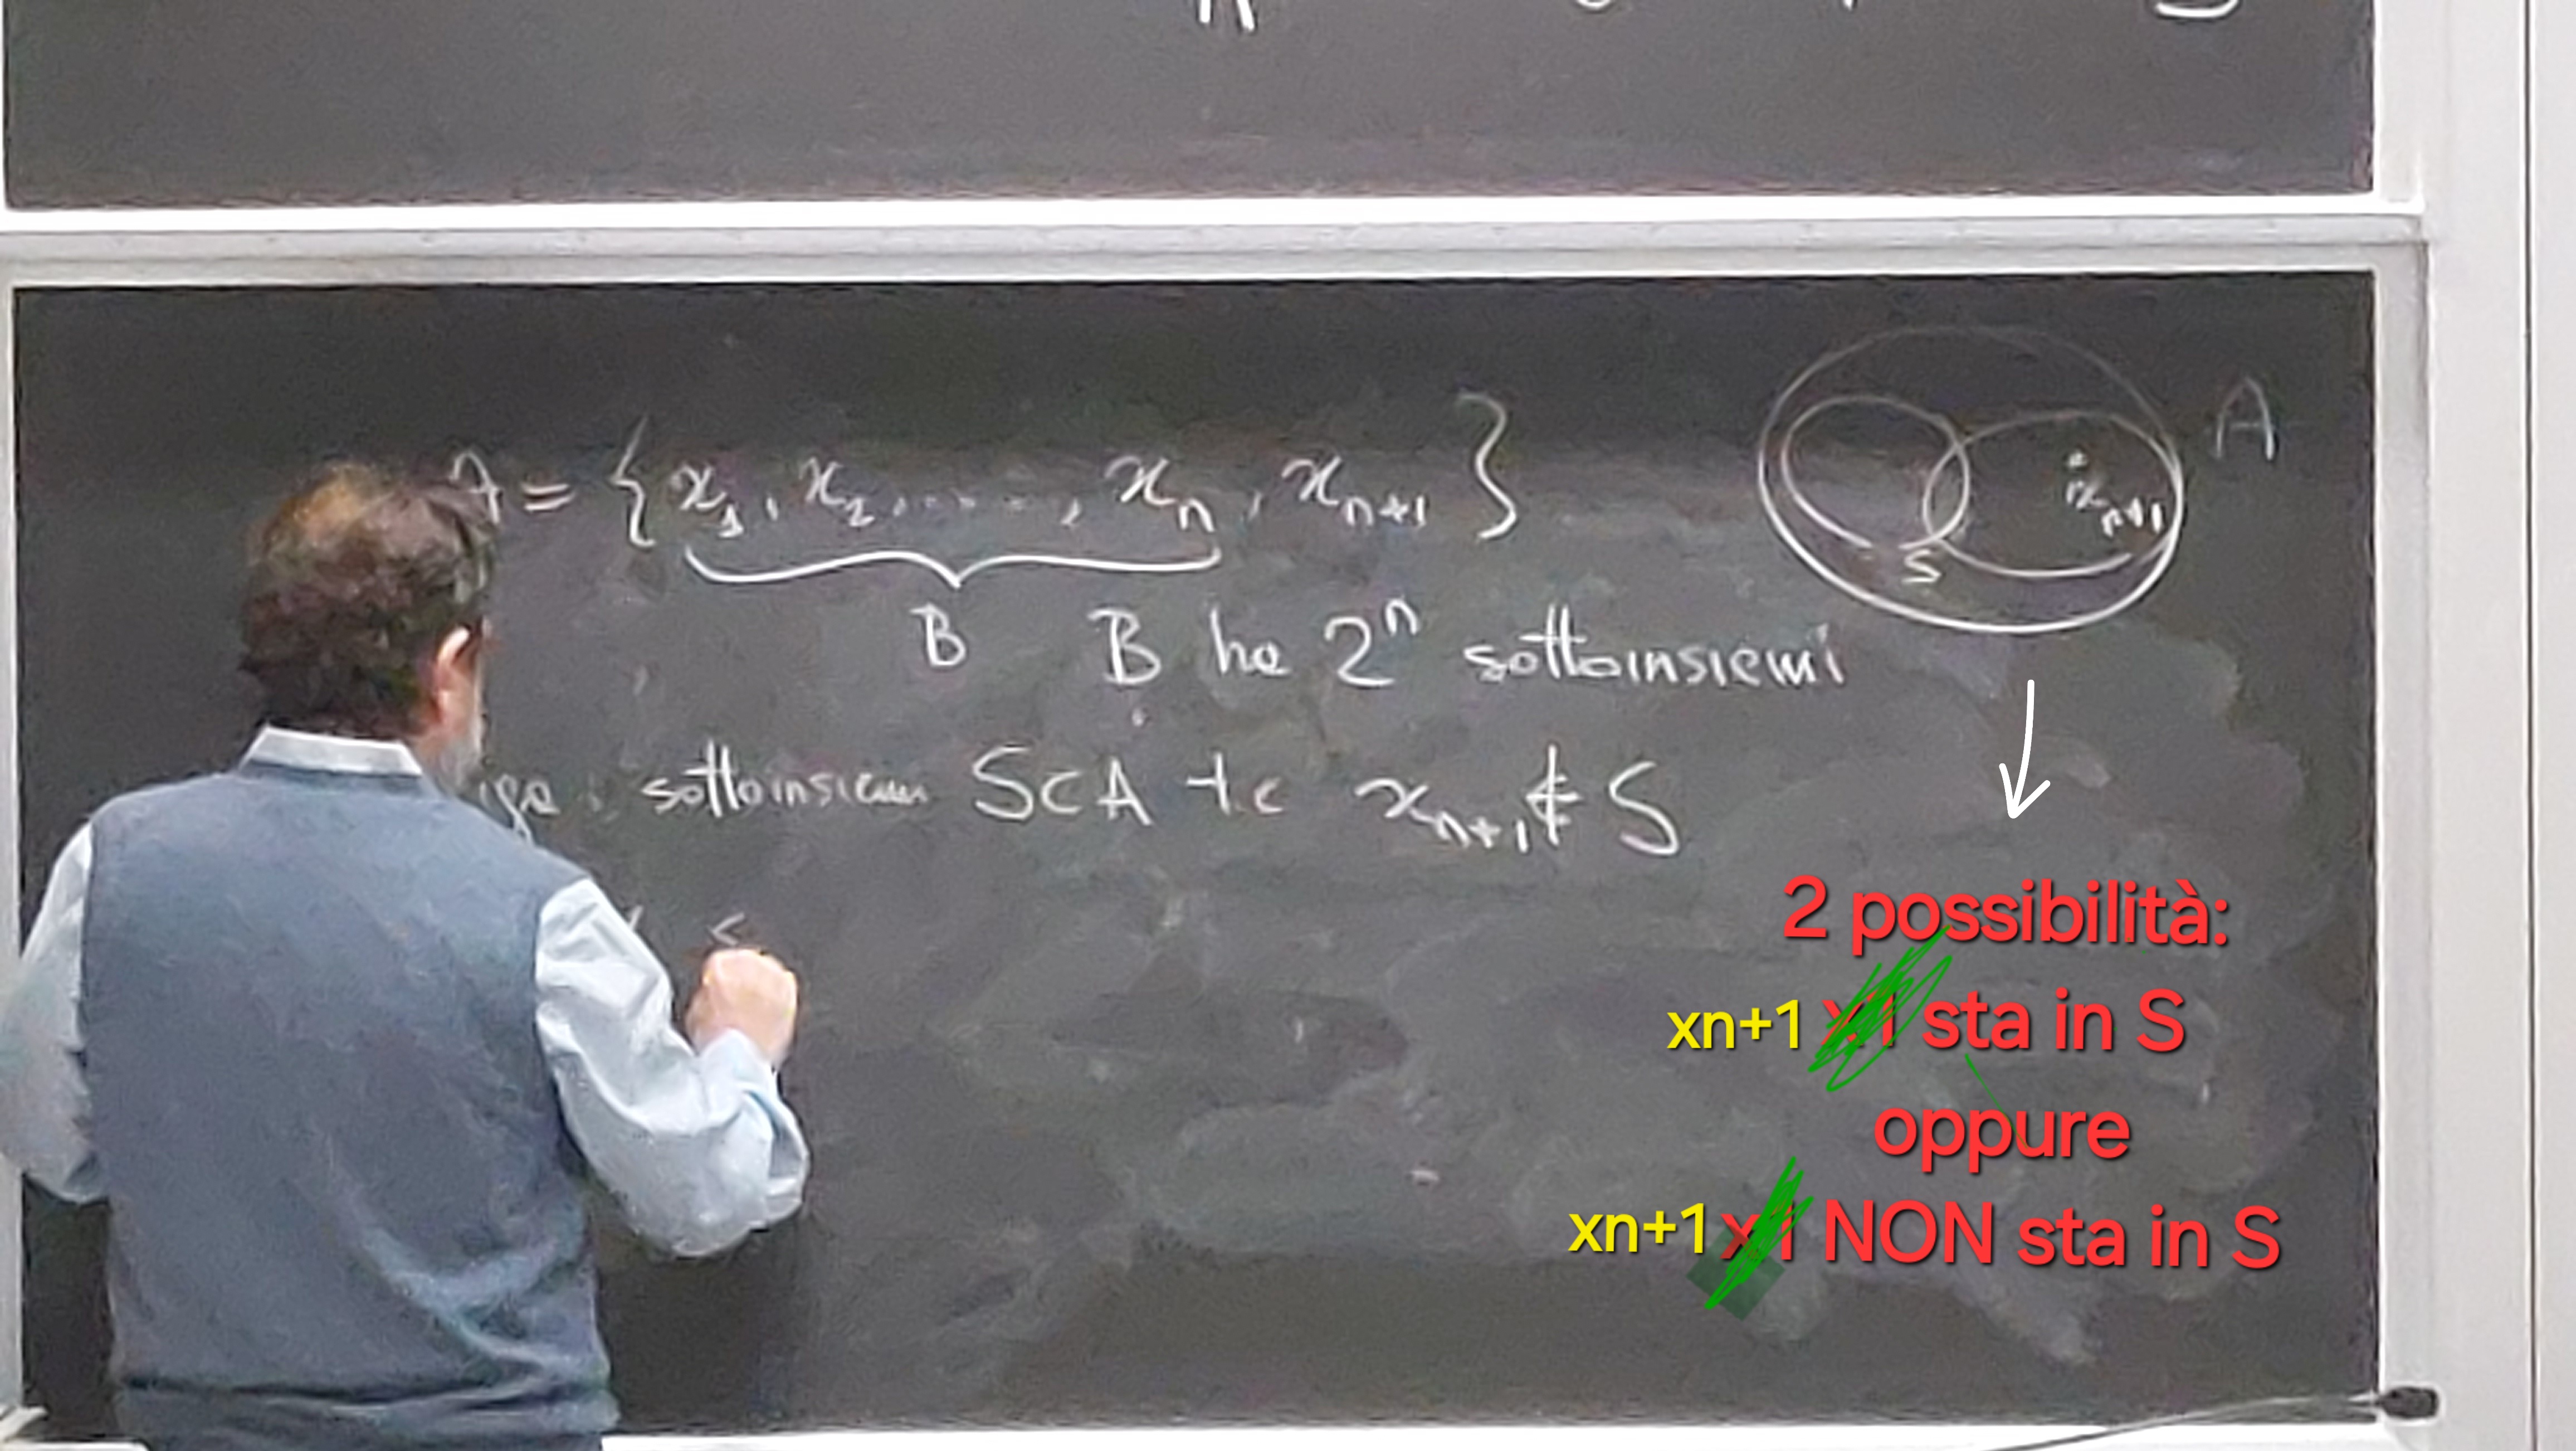 A = { x₁, x₂, ....., xₙ, xₙ₊₁ }
A
xₙ₊₁
S
B B ha 2ⁿ sottoinsiemi
sottoinsiemi S⊂A t.c xₙ₊₁ ∉ S
2 possibilità:
xn+1 x1 sta in S
oppure
xn+1 x1 NON sta in S